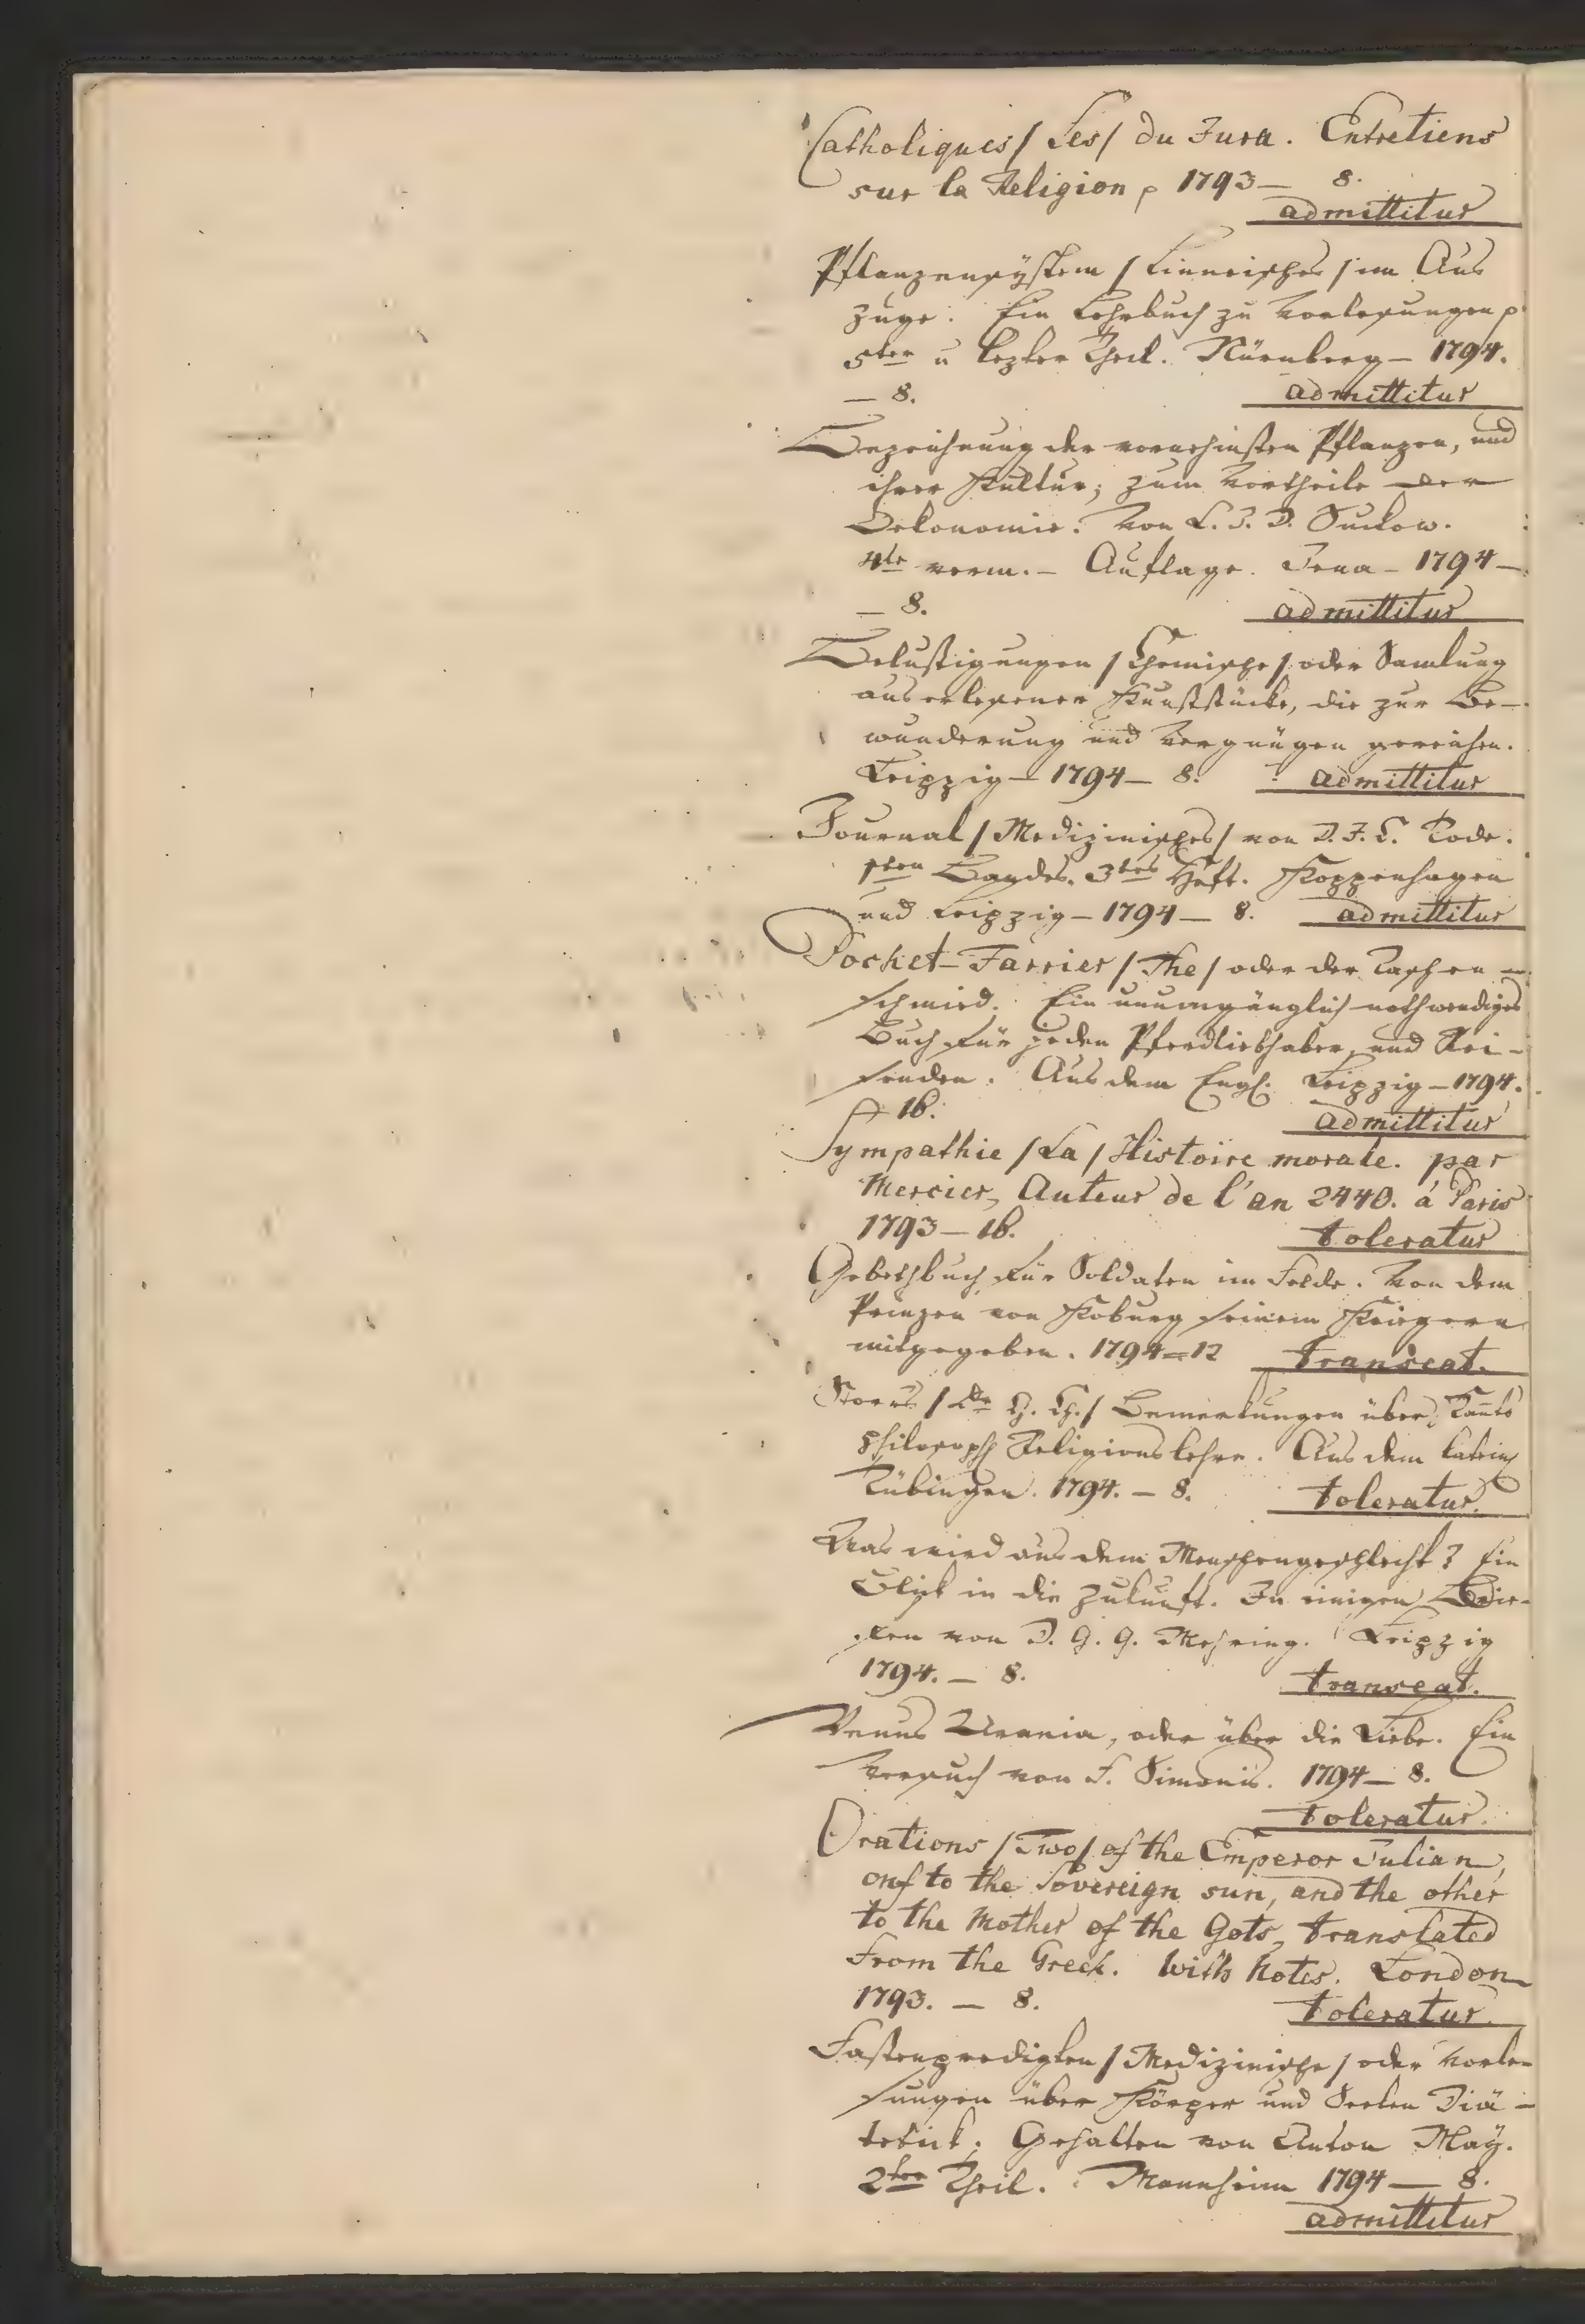 Catholiques / Les / du Jura. Entretiens
sur la Religion p 1793 — 8.
admittitur
Pflanzensÿstem / Linneisches / im Aus
zuge. Ein Lehrbuch zu Vorlesungen p
5ter u lezter Theil. Nürnberg — 1794.
— 8. admittitur
Bezeichnung der vornehmsten Pflanzen, und
ihrer Kultur; zum Vortheile der
Oekonomie. Von L. J. D. Suckow.
4te verm. — Auflage. Jena — 1794 —
— 8. admittitur
Belustigungen / Chemische / oder Samlung
auserlesener Kunststücke, die zur Be—
wunderung und Vergnügen gereichen.
Leipzig — 1794 — 8. admittitur
Journal / Medizinisches / von D. J. C. Tode.
1ten Bandes. 3tes Heft. Koppenhagen
und Leipzig — 1794 — 8. admittitur
Pocket-Farrier / The / oder der Taschen —
schmied. Ein unumgänglich nothwendiges
Buch für jeden Pferdliebhaber, und Rei—
senden. Aus dem Engl. Leipzig — 1794.
— 16. admittitur
Sympathie / La / Histoire morale. par
Mercier, Auteur de l'an 2440. á Paris
1793 — 16. toleratur
Gebethbuch für Soldaten im Felde. Von dem
Prinzen von Koburg seinem Kriegern
mitgegeben. 1794 = 12 transeat.
Storrs / Dr G. Ch. / Bemerkungen über Kants
philosoph Religionslehre. Aus dem Latein
Tübingen. 1794. — 8. toleratur.
Was wird aus dem Menschengeschlecht? Ein
Blick in die Zukunft. In einigen Brie—
fen von D. G. G. Mehring. Leipzig
1794. — 8. transeat.
Venus Urania, oder über die Liebe. Ein
Versuch von F. Simonis. 1794 — 8.
toleratur.
Orations / Two / of the Emperor Julian,
onf to the Sovereign sun, and the other
to the Mother of the Gots, translated
from the Greek. With Notes. London
1793. — 8. toleratur.
Fastenpredigten / Medizinische / oder Vorle—
sungen über Körper und Seelen Diä—
tetick; Gehalten von Anton Maÿ.
2ter Theil. Mannheim 1794 — 8.
admittitur